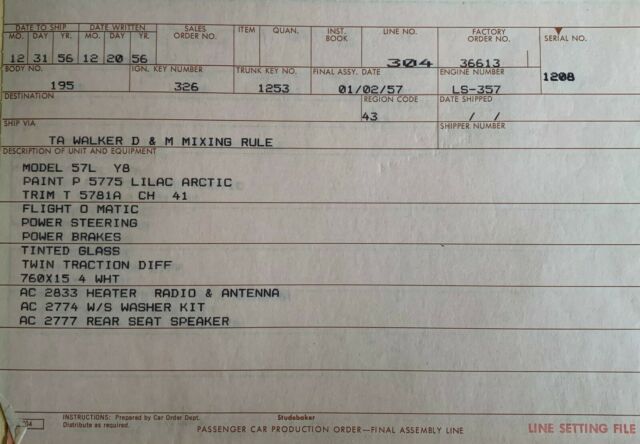 DATE TO SHIP DATE WRITTEN SALES ORDER NO. ITEM QUAN. INST. BOOK LINE NO. FACTORY ORDER NO. SERIAL NO.
MO. DAY YR. MO. DAY YR.
12 31 56 12 20 56 304 36613
BODY NO. IGN. KEY NUMBER TRUNK KEY NO. FINAL ASSY. DATE ENGINE NUMBER 1208
195 326 1253 01/02/57 LS-357
DESTINATION REGION CODE DATE SHIPPED
43 / /
SHIP VIA SHIPPER NUMBER
TA WALKER D & M MIXING RULE
DESCRIPTION OF UNIT AND EQUIPMENT
MODEL 57L Y8
PAINT P 5775 LILAC ARCTIC
TRIM T 5781A CH 41
FLIGHT O MATIC
POWER STEERING
POWER BRAKES
TINTED GLASS
TWIN TRACTION DIFF
760X15 4 WHT
AC 2833 HEATER RADIO & ANTENNA
AC 2774 W/S WASHER KIT
AC 2777 REAR SEAT SPEAKER
INSTRUCTIONS: Prepared by Car Order Dept. Studebaker
Distribute as required. PASSENGER CAR PRODUCTION ORDER—FINAL ASSEMBLY LINE LINE SETTING FILE